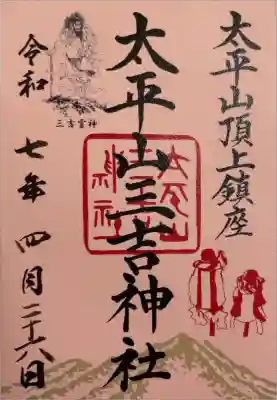 太平山頂上鎮座
太平山三吉神社
三吉霊神
令和七年四月二十六日
太平山
三吉
神社